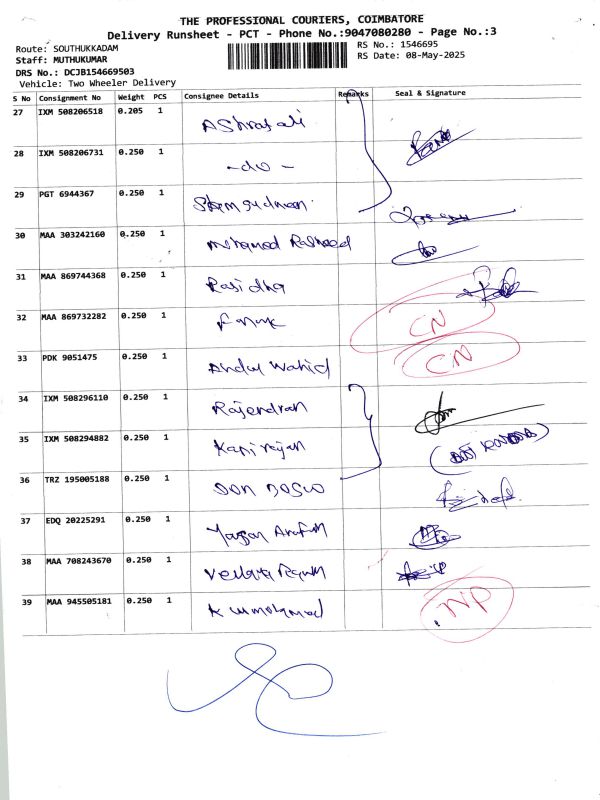 THE PROFESSIONAL COURIERS, COIMBATORE
Delivery Runsheet - PCT - Phone No.:9047080280 - Page No.:3
Route: SOUTHUKKADAM
RS No.: 1546695
Staff: MUTHUKUMAR
RS Date: 08-May-2025
DRS No.: DCJB154669503
Vehicle: Two Wheeler Delivery
S No Consignment No Weight PCS Consignee Details Remarks Seal & Signature
27 IXM 508206518 0.205 1 Ashraf ali
28 IXM 508206731 0.250 1 -do-
29 PGT 6944367 0.250 1
30 MAA 303242160 0.250 1 Mohamed Rasheed
31 MAA 869744368 0.250 1 Rasidha
32 MAA 869732282 0.250 1 CN
33 PDK 9051475 0.250 1 Abdul Wahid CN
34 IXM 508296110 0.250 1 Rajendran
35 IXM 508294882 0.250 1
36 TRZ 195005188 0.250 1 DON BOSCO
37 EDQ 20225291 0.250 1
38 MAA 708243670 0.250 1
39 MAA 945505181 0.250 1 NP